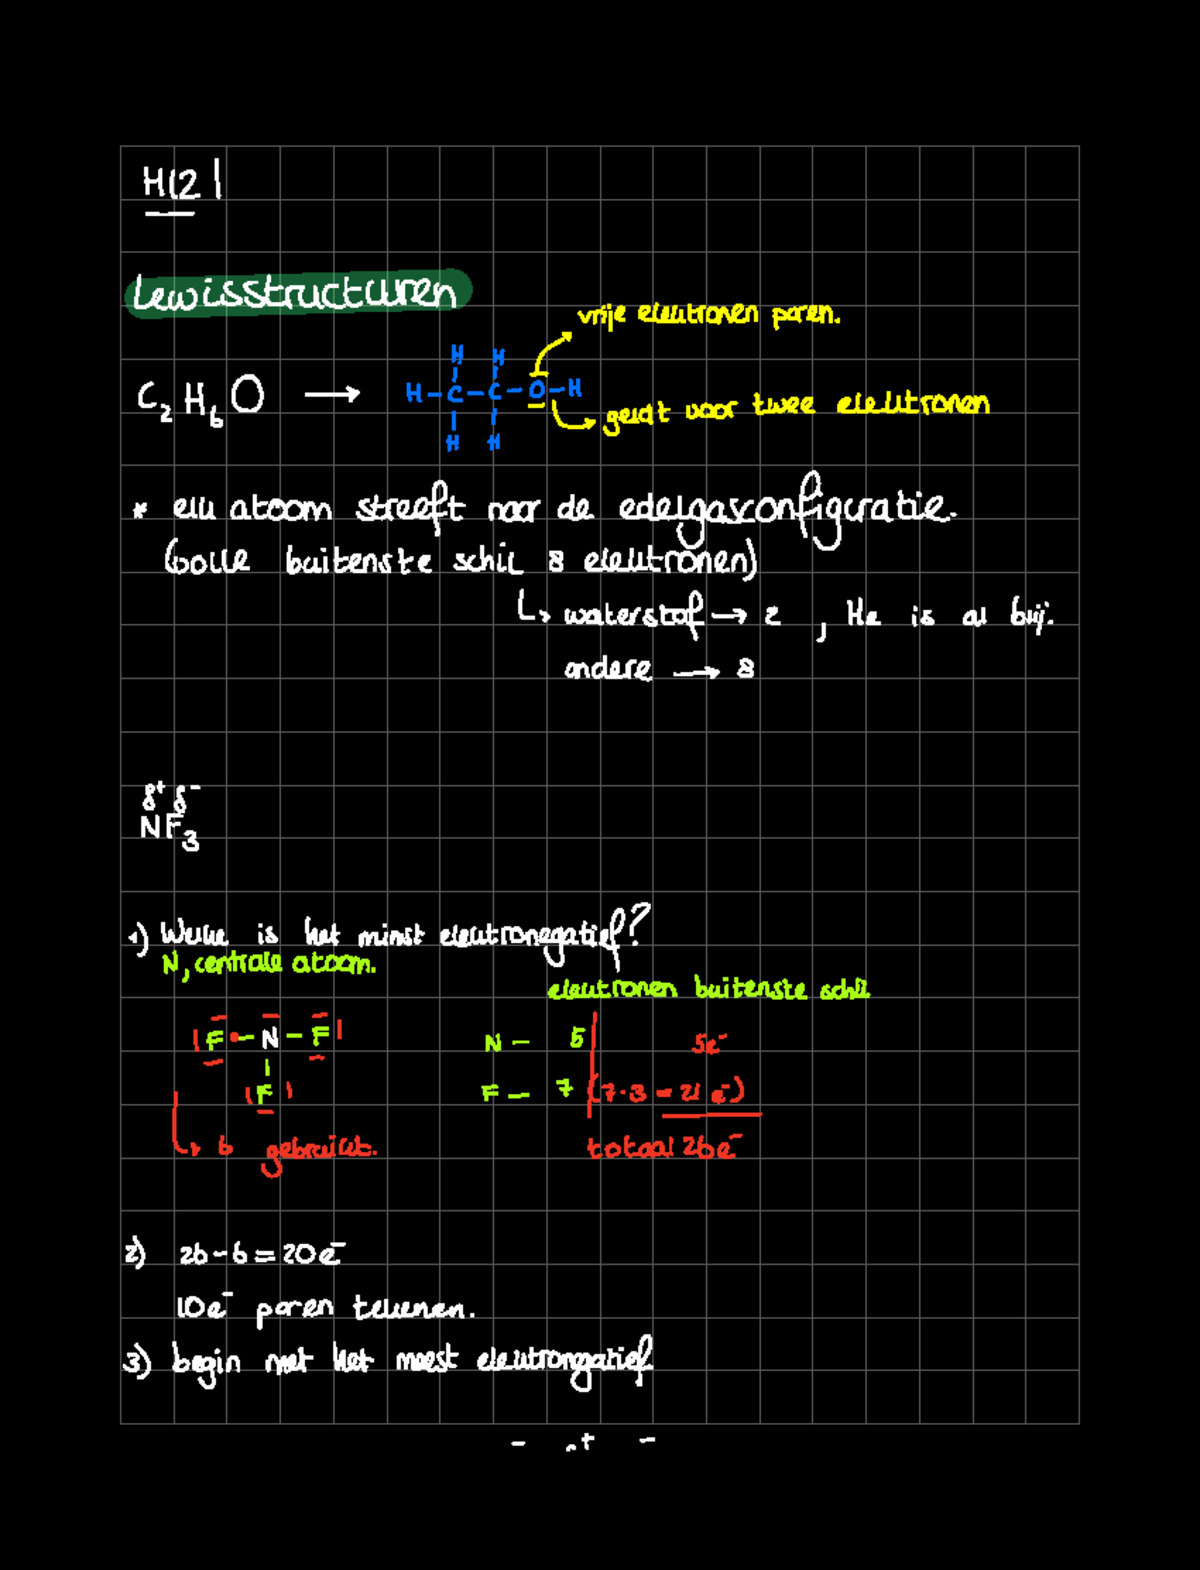 H12
Lewisstructuren
vrije elektronen paren.
C₂H₆O →
H H
H-C-C-O-H
H H
geldt voor twee elektronen
* elk atoom streeft naar de edelgasconfiguratie.
(volle buitenste schil 8 elektronen)
↳ waterstof → 2 , He is al blij.
andere → 8
δ+ δ-
NF₃
1) Welke is het minst elektronegatief?
N, centrale atoom.
elektronen buitenste schil
F - N - F
F
N - 5 | 5e⁻
F - 7 | (7·3 = 21 e⁻)
↳ 6 gebruikt.
totaal 26e⁻
2) 26-6=20e⁻
10e⁻ paren tekenen.
3) begin met het meest elektrongatief